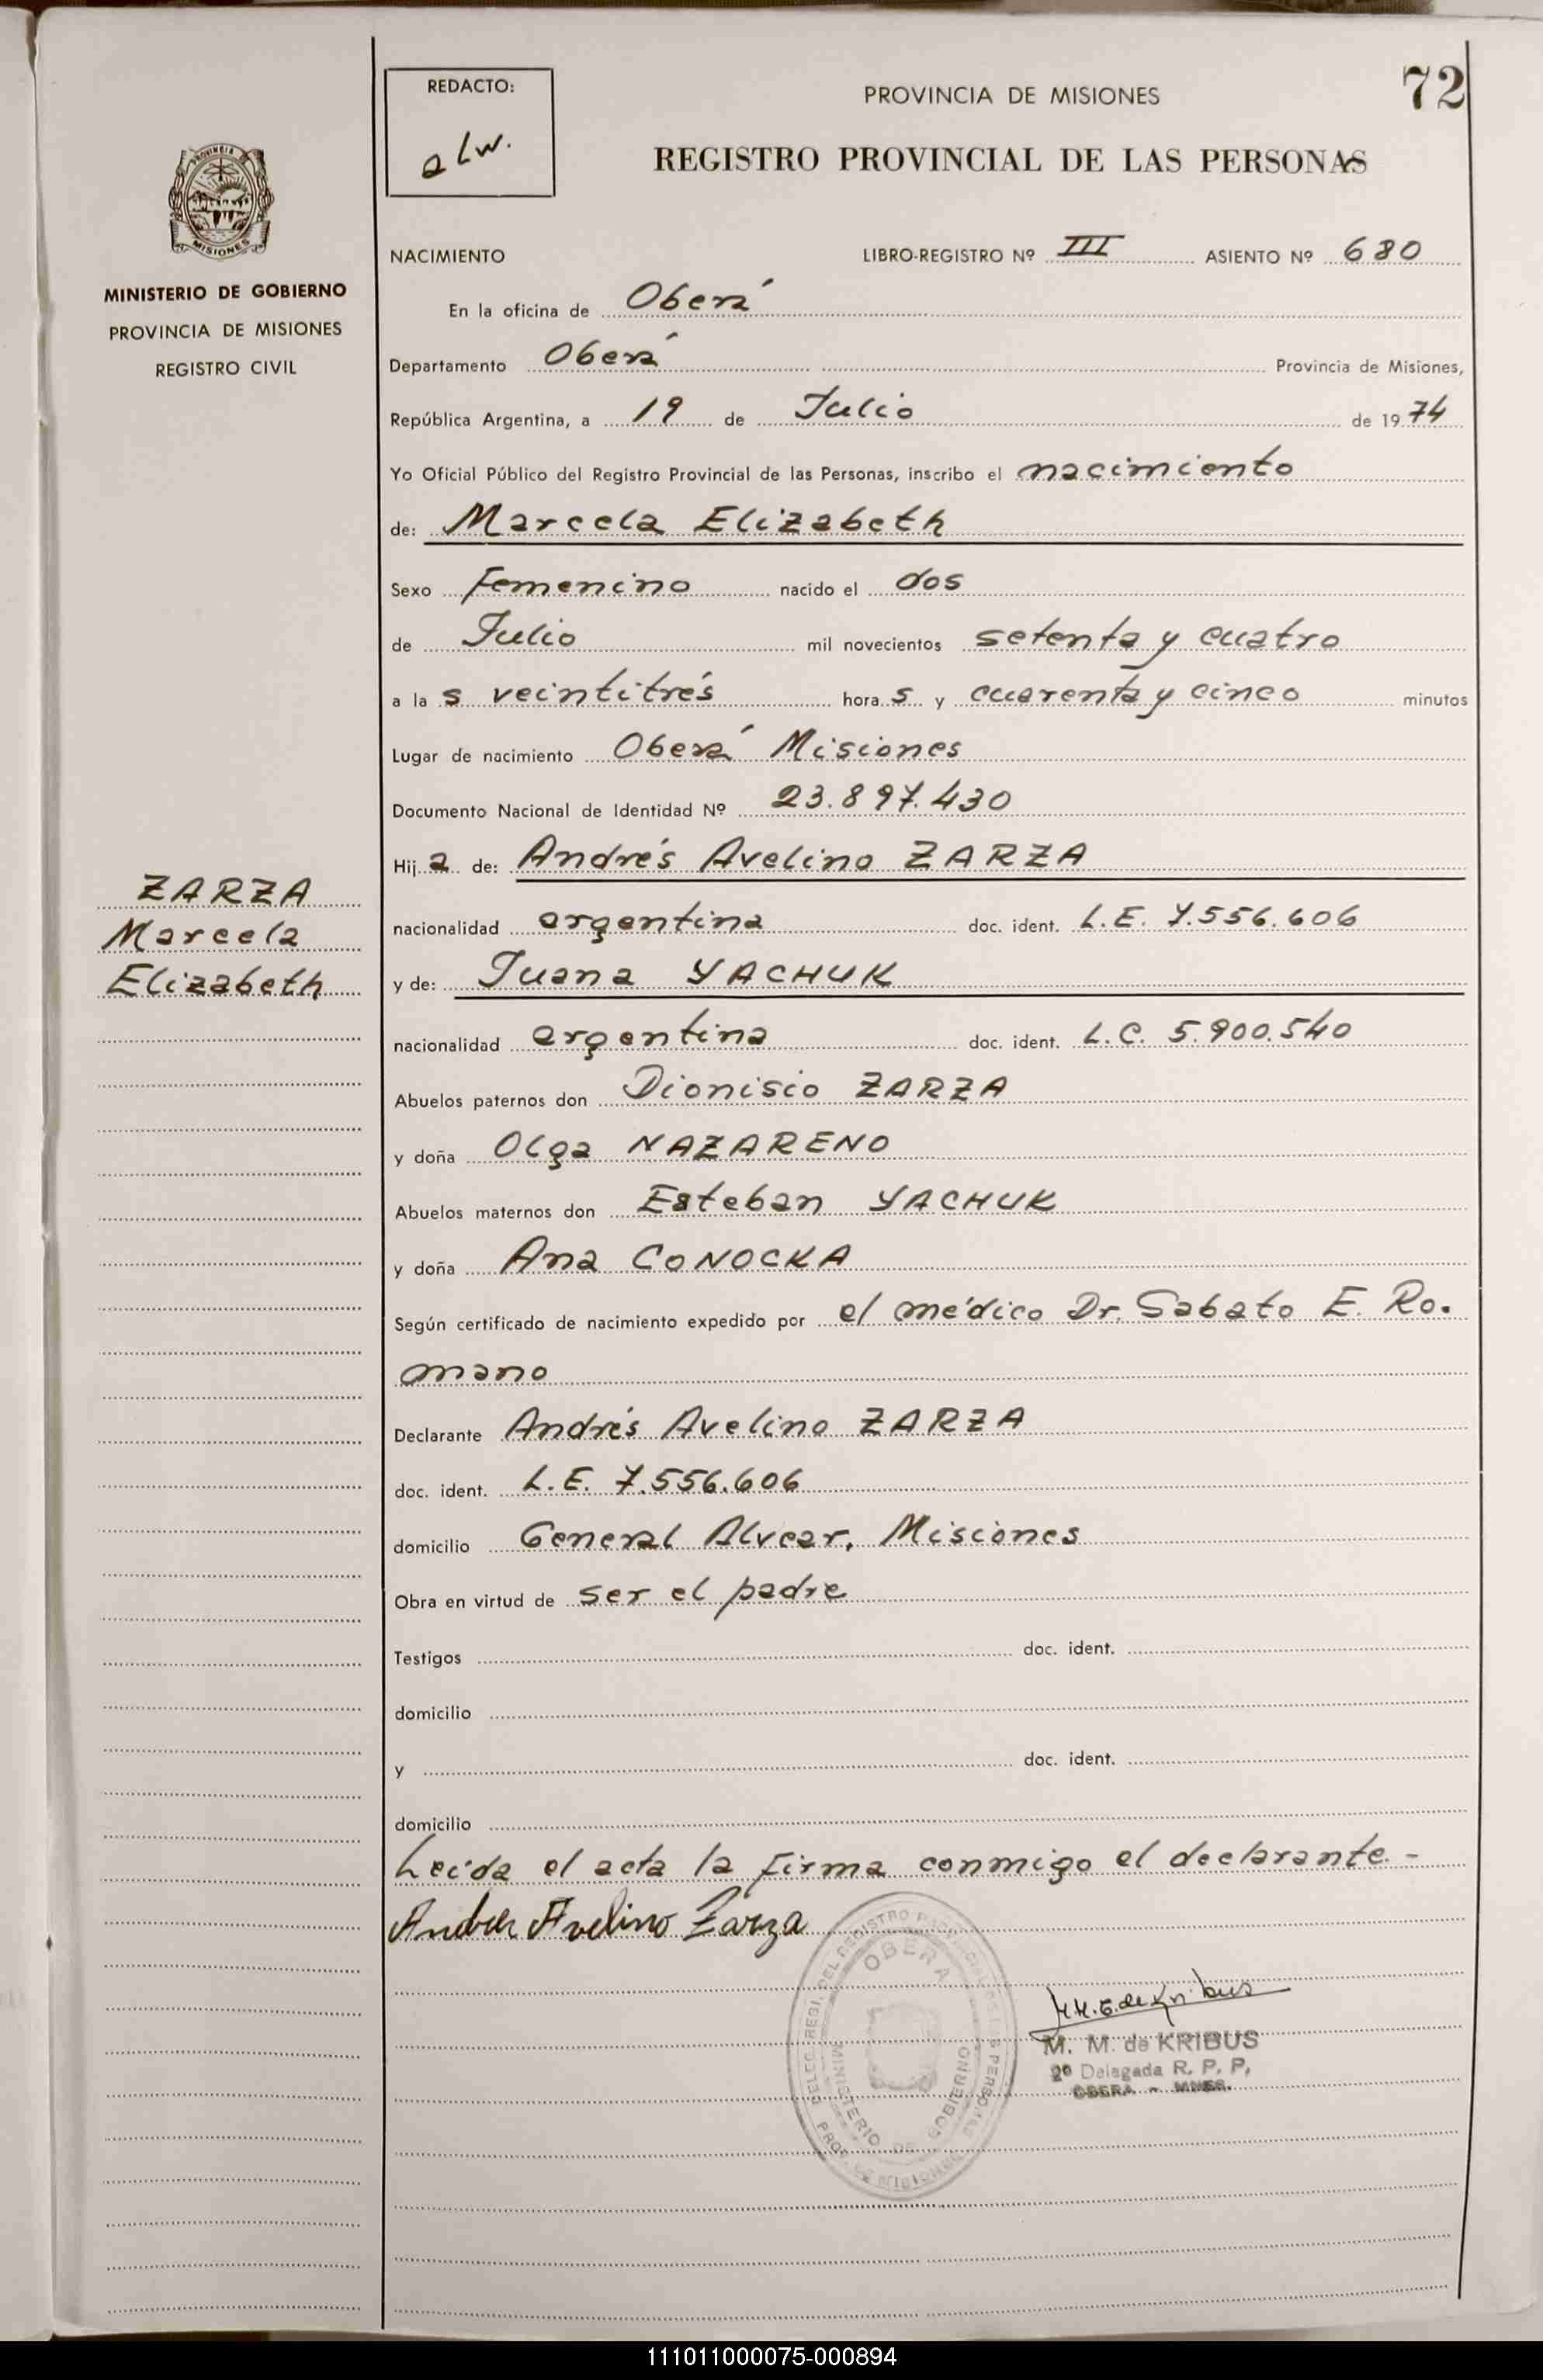 72
REDACTO:
alw.
PROVINCIA DE MISIONES
REGISTRO PROVINCIAL DE LAS PERSONAS
MISIONES
MINISTERIO DE GOBIERNO
PROVINCIA DE MISIONES
REGISTRO CIVIL
NACIMIENTO LIBRO-REGISTRO Nº III ASIENTO Nº 680
En la oficina de Oberá
Departamento Oberá Provincia de Misiones,
República Argentina, a 19 de Julio de 1974
Yo Oficial Público del Registro Provincial de las Personas, inscribo el nacimiento
de: Marcela Elizabeth
Sexo Femenino nacido el dos
de Julio mil novecientos setenta y cuatro
a las veintitrés horas y cuarenta y cinco minutos
Lugar de nacimiento Oberá Misiones
Documento Nacional de Identidad Nº 23.897.430
Hija de: Andrés Avelino ZARZA
ZARZA
Marcela
Elizabeth
nacionalidad argentina doc. ident. L.E. 7.556.606
y de: Juana YACHUK
nacionalidad argentina doc. ident. L.C. 5.900.540
Abuelos paternos don Dionisio ZARZA
y doña Olga NAZARENO
Abuelos maternos don Esteban YACHUK
y doña Ana CONOCKA
Según certificado de nacimiento expedido por el médico Dr. Sabato E. Ro-
mano
Declarante Andrés Avelino ZARZA
doc. ident. L.E. 7.556.606
domicilio General Alvear, Misiones
Obra en virtud de ser el padre
Testigos doc. ident.
domicilio
y doc. ident.
domicilio
Leída el acta la firma conmigo el declarante.-
Andres Avelino Zarza
OBERA
MINISTERIO DE GOBIERNO
M. M. de KRIBUS
2º Delegada R. P. P.
OBERA - MNES.
111011000075-000894